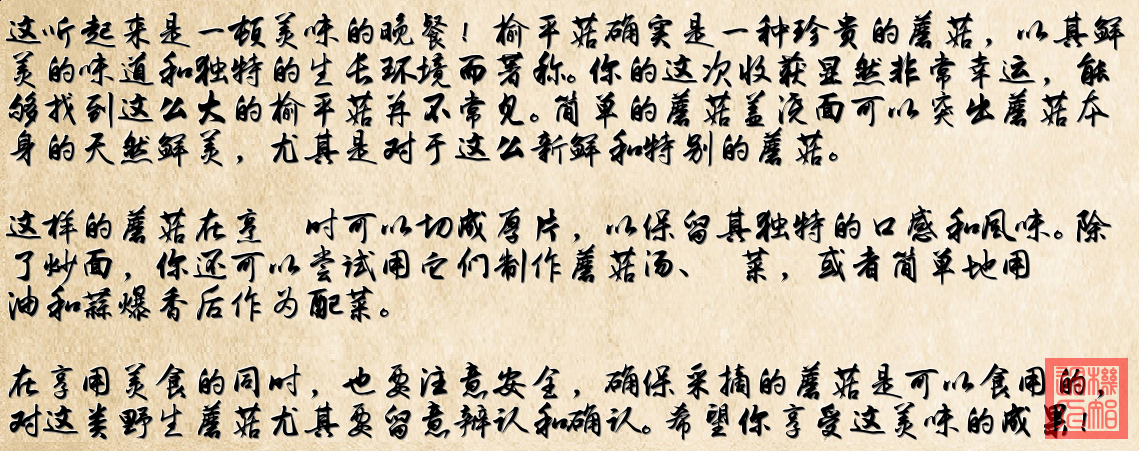 这听起来是一顿美味的晚餐！榆平菇确实是一种珍贵的蘑菇，以其鲜
美的味道和独特的生长环境而著称。你的这次收获显然非常幸运，能
够找到这么大的榆平菇并不常见。简单的蘑菇盖浇面可以突出蘑菇本
身的天然鲜美，尤其是对于这么新鲜和特别的蘑菇。
这样的蘑菇在烹 时可以切成厚片，以保留其独特的口感和风味。除
了炒面，你还可以尝试用它们制作蘑菇汤、 菜，或者简单地用
油和蒜爆香后作为配菜。
在享用美食的同时，也要注意安全，确保采摘的蘑菇是可以食用的，
对这类野生蘑菇尤其要留意辨认和确认。希望你享受这美味的成果！